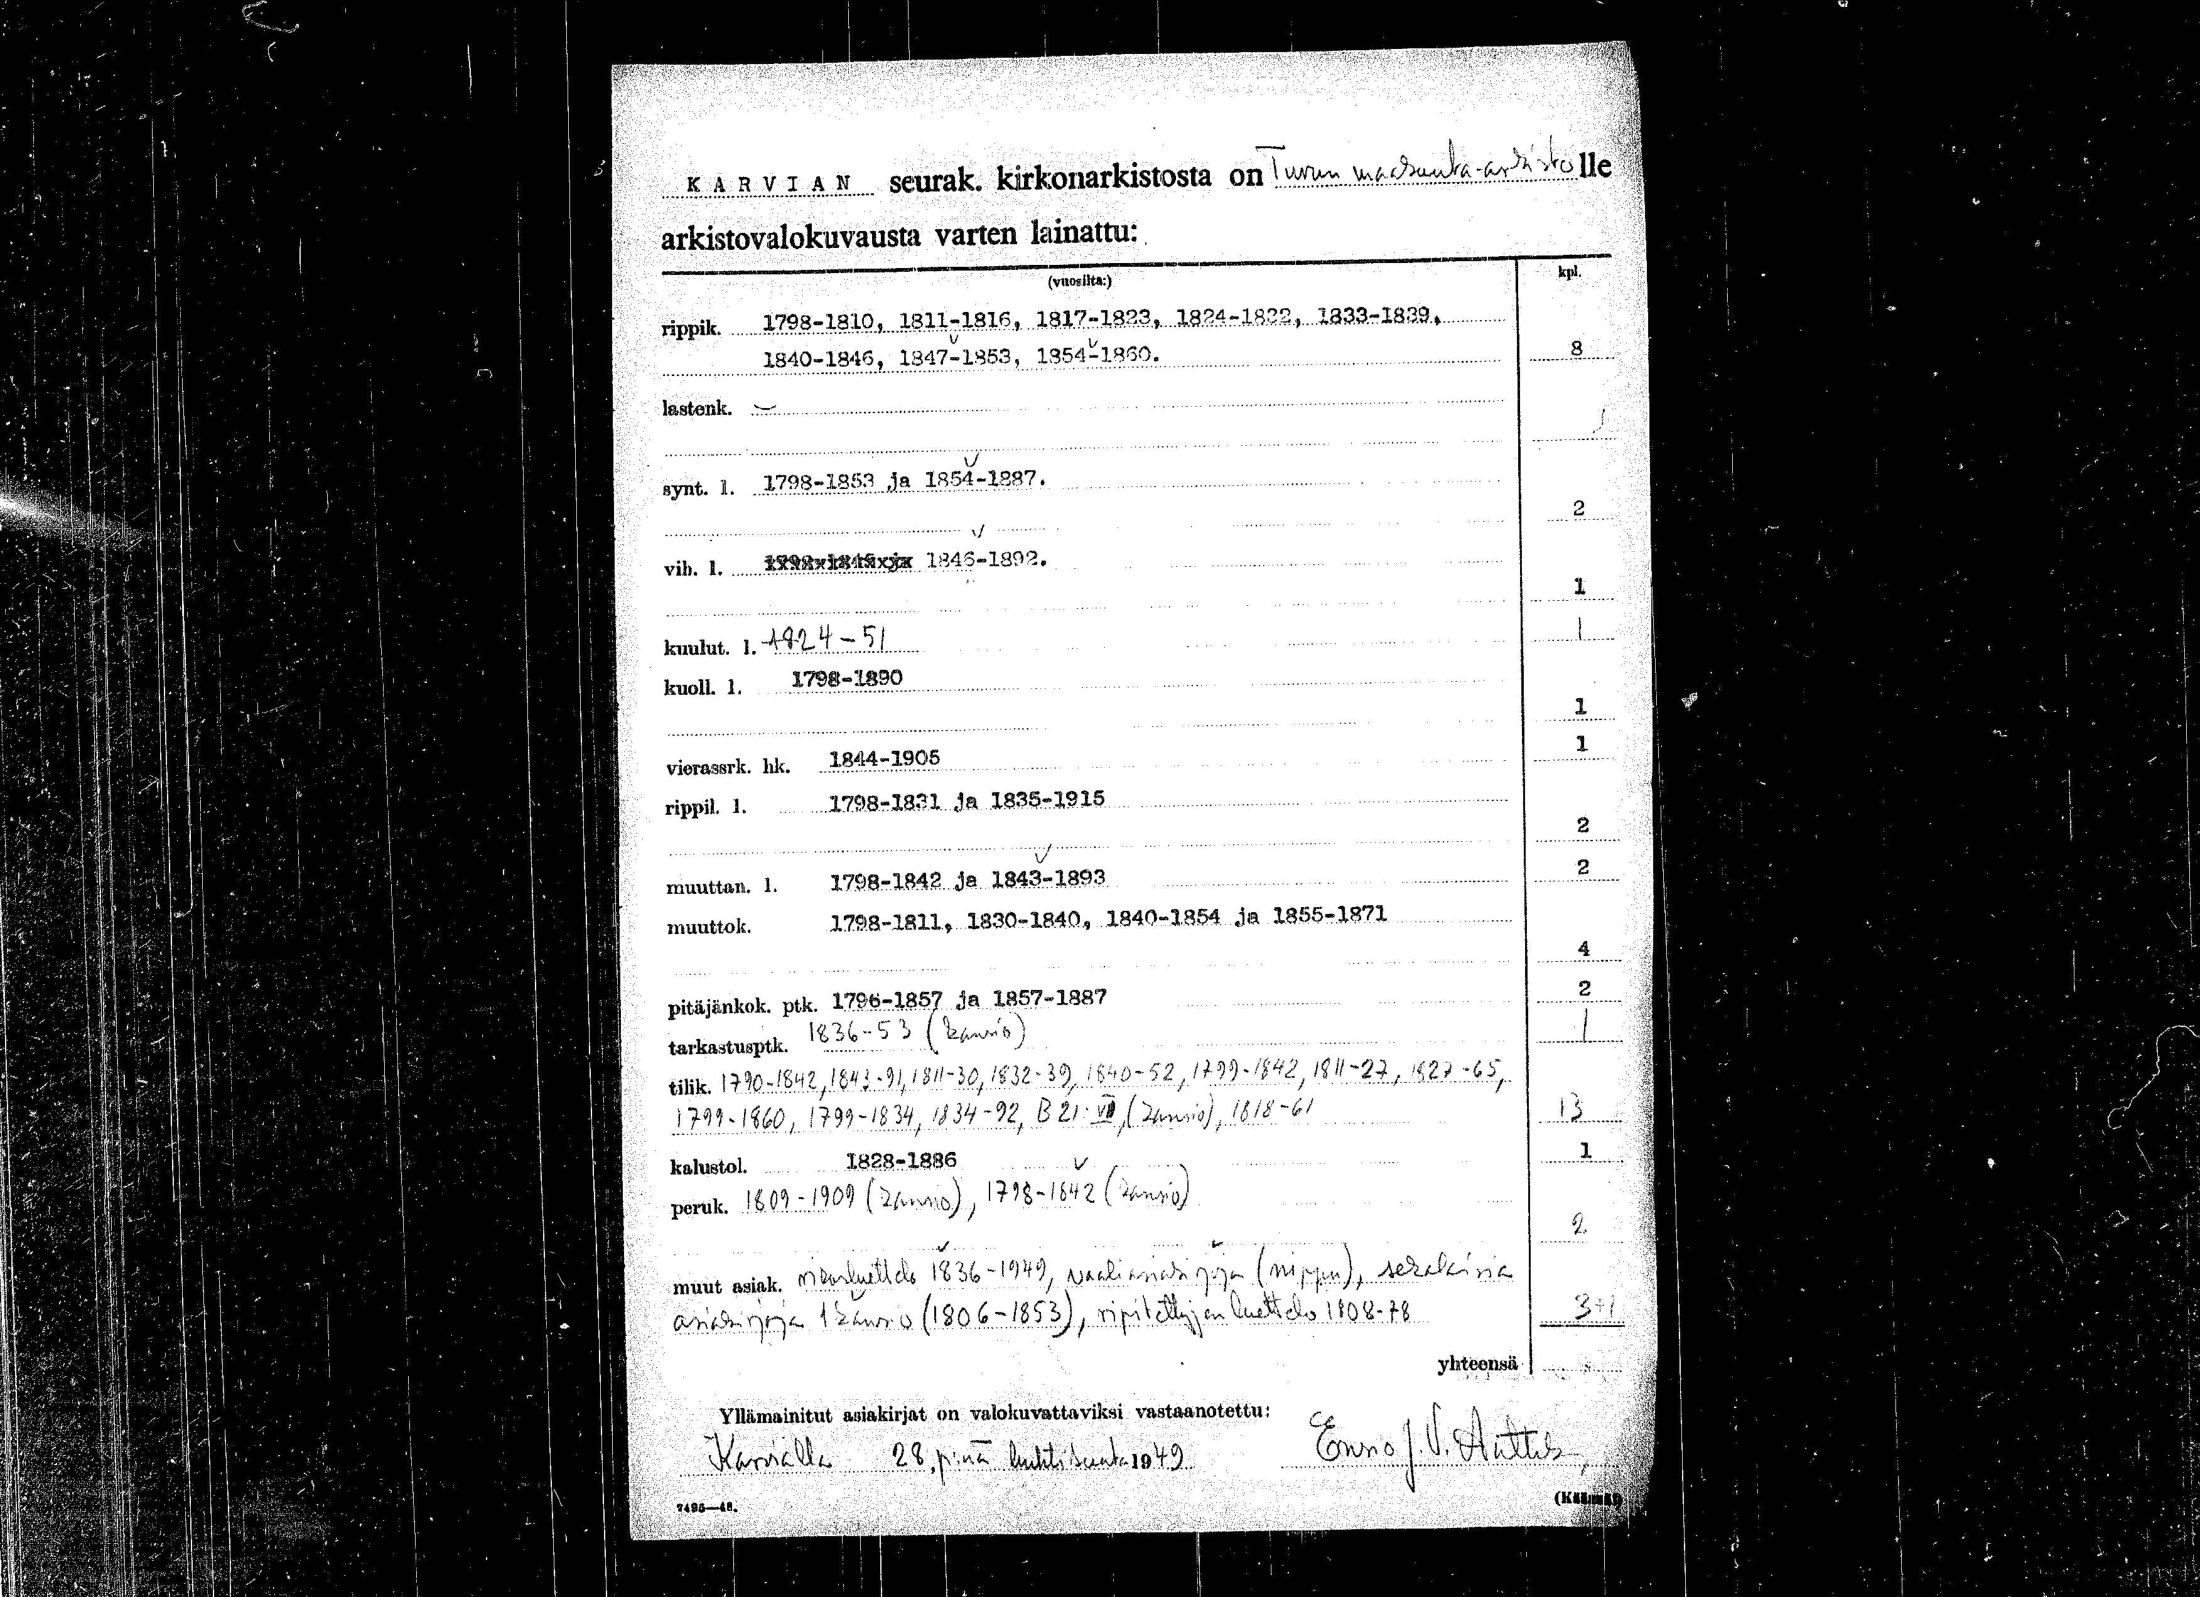 KARVIAN seurak. kirkonarkistosta on Turun maakunta-arkistolle
arkistovalokuvausta varten lainattu:
(vuosilta:) kpl.
rippik. 1798-1810, 1811-1816, 1817-1823, 1824-1832, 1833-1839,
1840-1846, 1847-1853, 1854-1860. 8
lastenk. —
synt. l. 1798-1853 ja 1854-1887.
2
vih. l. 1846-1892.
1
kuulut. l. 1824-51 1
kuoll. l. 1798-1890
1
vierassrk. hk. 1844-1905 1
rippil. l. 1798-1831 ja 1835-1915
2
muuttan. l. 1798-1842 ja 1843-1893 2
muuttok. 1798-1811, 1830-1840, 1840-1854 ja 1855-1871
4
pitäjänkok. ptk. 1796-1857 ja 1857-1887 2
tarkastusptk. 1836-53 (kansio) 1
tilik. 1790-1842, 1843-91, 1811-30, 1832-39, 1840-52, 1799-1842, 1811-27, 1827-65,
1799-1860, 1799-1834, 1834-92, B 21: (kansio), 1818-61 13
kalustol. 1828-1886 1
peruk. 1809-1909 (kansio), 1798-1842 (kansio)
2
muut asiak. 1836-1949, vaaliasiakirjoja (nippu), sekalaisia
asiakirjoja 1 kansio (1806-1853), ripitettyjen luettelo 1808-78 3+1
yhteensä
Yllämainitut asiakirjat on valokuvattaviksi vastaanotettu:
Karvialla 28 p:nä huhtikuuta 1949 J. V.
7495—48.